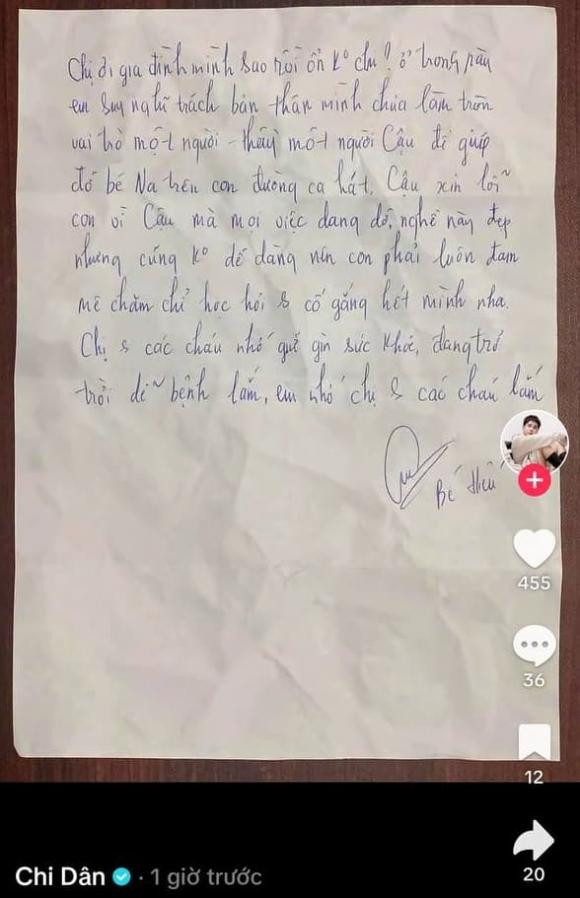 Chị ơi gia đình mình sao rồi ổn k° chị? Ở trong này
em suy nghĩ trách bản thân mình chưa làm tròn
vai trò một người thầy một người Cậu để giúp
đỡ bé Na trên con đường ca hát. Cậu xin lỗi
con vì Cậu mà mọi việc dang dở, nghề này đẹp
nhưng cũng k° dễ dàng nên con phải luôn đam
mê chăm chỉ học hỏi & cố gắng hết mình nha.
Chị & các cháu nhớ giữ gìn sức khỏe, đang trở
trời dễ bệnh lắm, em nhớ chị & các cháu lắm
Bé Hiếu
455
36
12
20
Chi Dân · 1 giờ trước